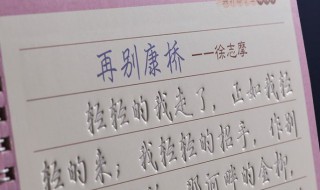 再别康桥 ——徐志摩
轻轻的我走了,正如我轻
轻的来;我轻轻的招手,作别
那河畔的金柳,